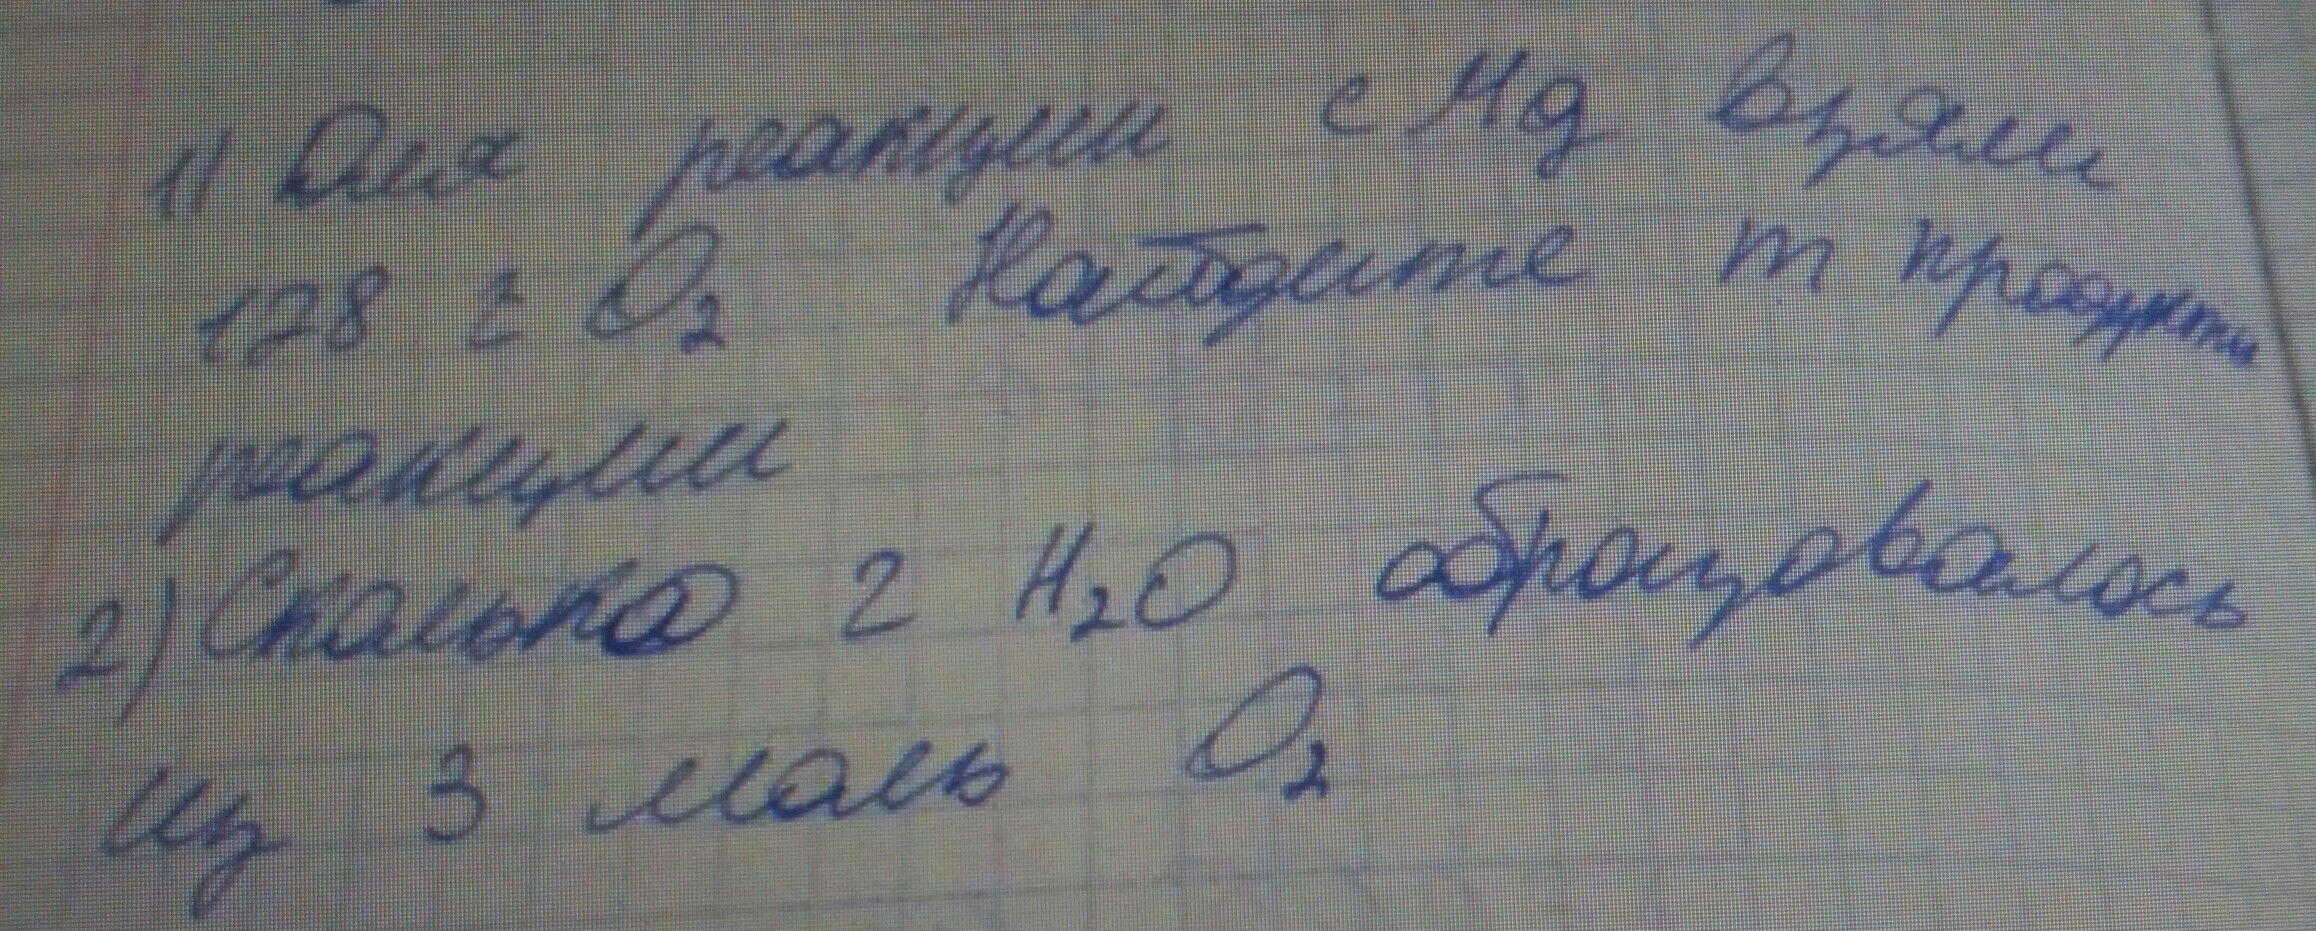 1) Для реакции с Mg взяли
128 г O₂ Найдите m продукта
реакции
2) Сколько г H₂O образовалось
из 3 моль O₂